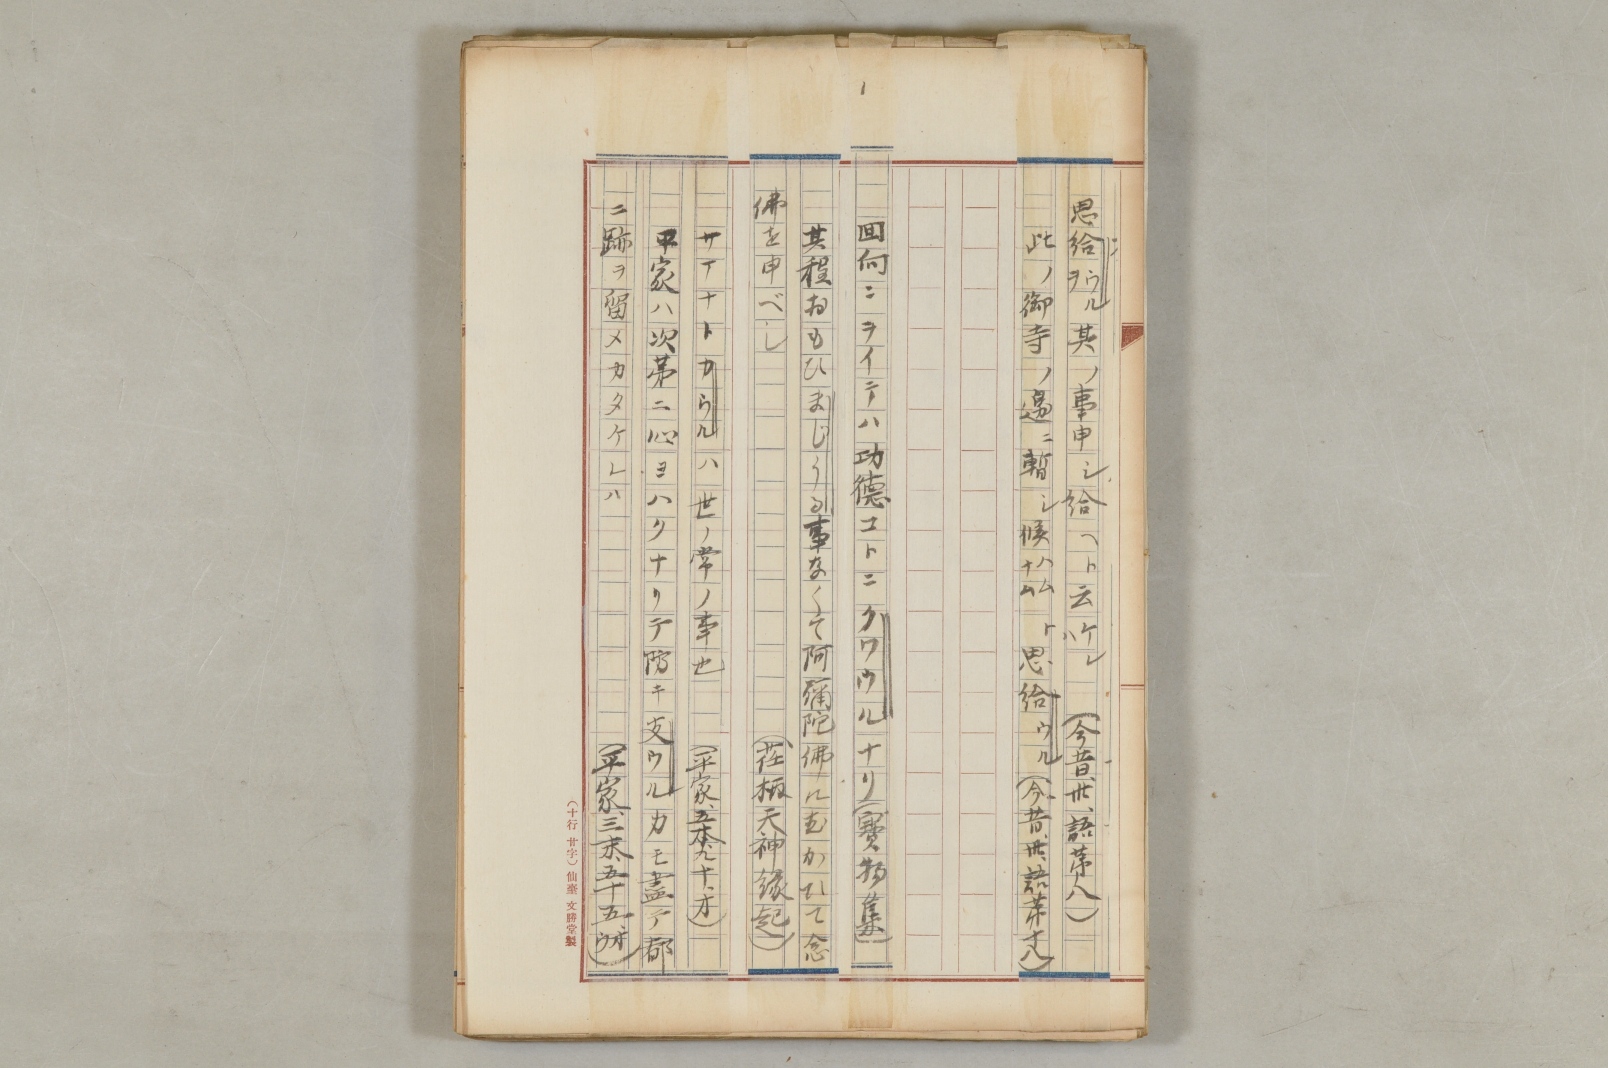 思給ウルヲ其ノ事申シ給ヘト云ケレハ (今昔、丗、語第八)
此ノ御寺ノ邊ニ暫シ候ハムナムト思給ウル (今昔、丗、語第十八)
回向ニヲイテハ功德コトニクワウルナリ (寶物集)
其程おもひまじうる事なくて阿彌陀佛にむかひて念
佛を申べし (荏柄天神縁起)
サテナトカウルハ世ノ常ノ事也 (平家、五本、九十、オ)
平家ハ次第ニ心ヨハクナリテ防キ支ウルカモ盡テ都
ニ跡ヲ留メカタケレハ (平家、三末、五十五、ウ)
(十行 廿字) 仙臺 文勝堂製